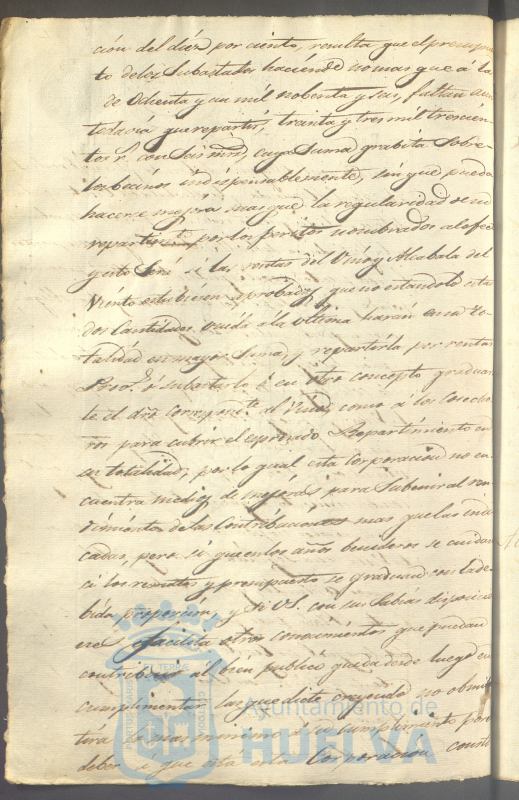 ción del diez por ciento, resulta que el presupues
to de los Subastados haciende no mas que á la
de Ochenta y un mil nobenta y seis, faltan aun
todavia que repartir, treinta y tres mil trescien
tos r. con Seis mrs, cuya Suma grabita Sobre
los becinos indispensablemente, sin que pueda
hacerse mejora mas que la regularidad de un
repartim.to por los peritos nombrados al efec
y esto Será si las rentas del Vino y Alcabala del
Viento estubiesen aprobadas, que no estandolo estas
dos Cantidades unida á la ultima harán en su to
talidad un mayor Suma, y repartirla por rentas
Prov.s ó subastarlo ó en otro concepto graduan
le el dro Correspond.te al Vino, como á los Coseche
ros para cubrir el espresado Repartimiento en
su totalidad, por lo qual esta Corporacion no en
cuentra medios de mejoras para Subenir al ren
dimiento de las Contribuciones mas que las indi
cadas, pero si que en los años benideros se cuidará
si los remates y presupuesto se graduan con la de
bida proporcion, y si VS. con sus Sabias disposicio
nes facilita otros conocimientos que puedan
contribuir al bien publico queda desde luego en
cumplimentar las que dicte creyendo no obmi
tirá lo mas minimo á su cumplimiento por
deber á que está esta Corporacion consti
EL TERRE
Ayuntamiento de
HUELVA